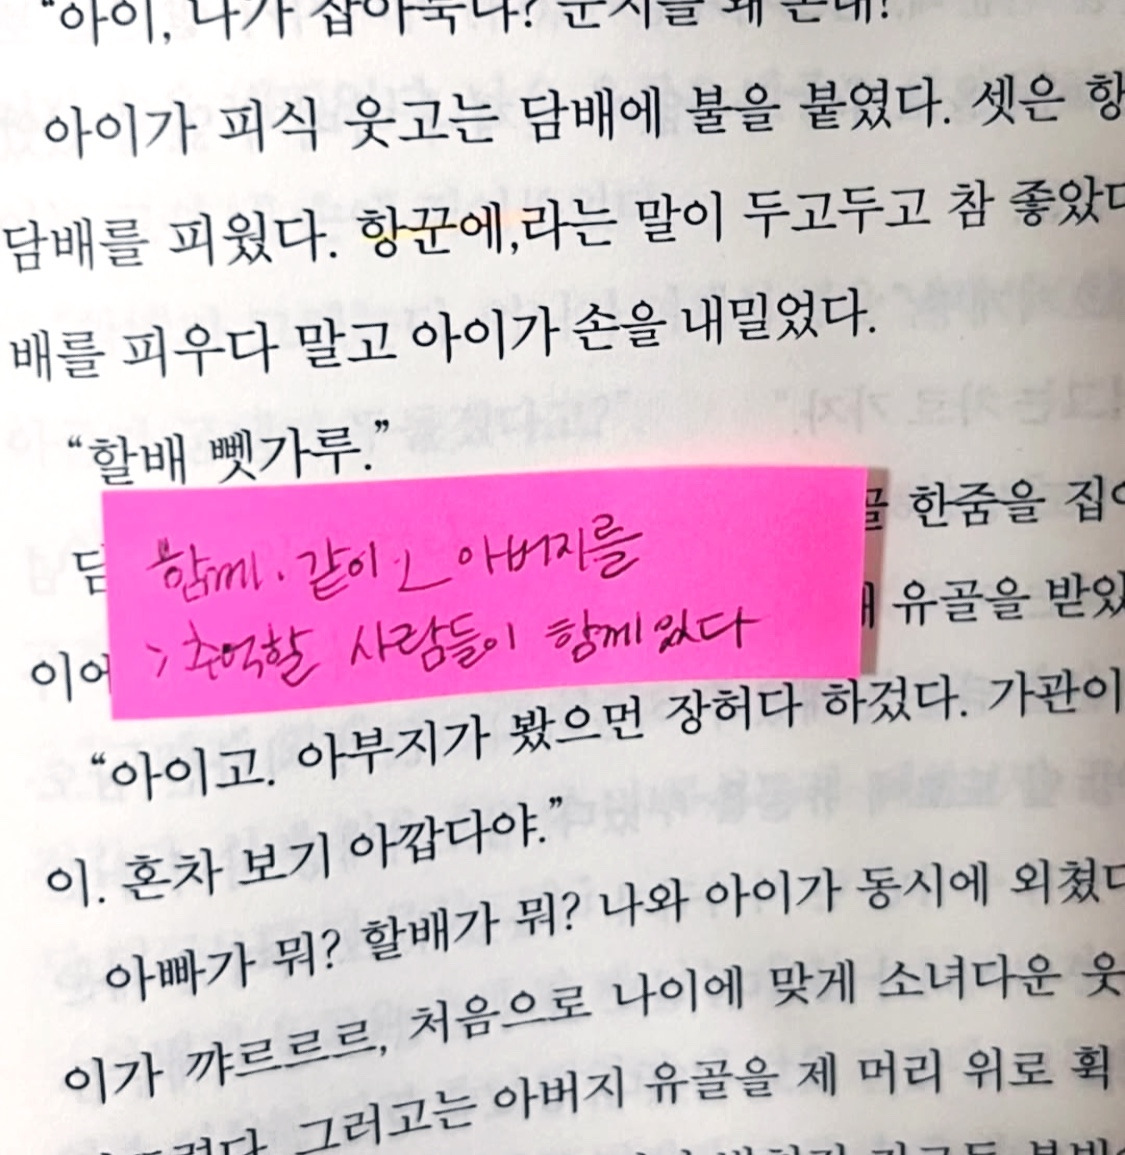 "아이, 나가 잡아묵나? 눈치를 왜
아이가 피식 웃고는 담배에 불을 붙였다. 셋은 항
담배를 피웠다. 항꾼에,라는 말이 두고두고 참 좋았다
배를 피우다 말고 아이가 손을 내밀었다.
"할배 뼛가루."
한줌을 집어
함께. 같이
아버지를
유골을 받았
추억할 사람들이 함께 있다
이어
"아이고. 아부지가 봤으먼 장허다 하겄다. 가관이
이. 혼차 보기 아깝다야."
아빠가 뭐? 할배가 뭐? 나와 아이가 동시에 외쳤다
이가 꺄르르르, 처음으로 나이에 맞게 소녀다운 웃
그러고는 아버지 유골을 제 머리 위로 획